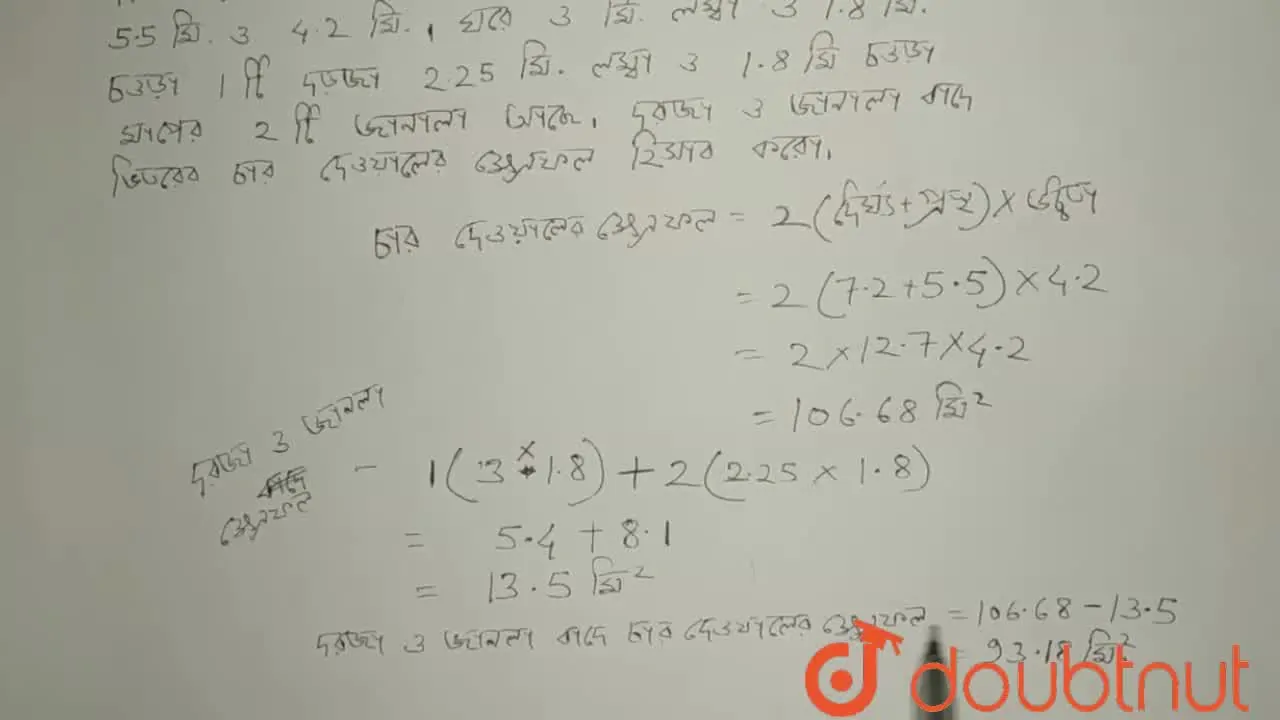 5.5 মি. ও 4.2 মি., ঘরে 3 মি. লম্বা ও 1.8 মি.
চওড়া 1 টি দরজা 2.25 মি. লম্বা ও 1.8 মি চওড়া
মাপের 2 টি জানালা আছে, দরজা ও জানালা বাদে
ভিতরের চার দেওয়ালের ক্ষেত্রফল হিসাব করো,
চার দেওয়ালের ক্ষেত্রফল = 2 (দৈর্ঘ্য + প্রস্থ) × উচ্চতা
= 2 (7.2 + 5.5) × 4.2
= 2 × 12.7 × 4.2
= 106.68 মি²
দরজা ও জানলা
ক্ষেত্রফল
– 1 (3 × 1.8) + 2 (2.25 × 1.8)
= 5.4 + 8.1
= 13.5 মি²
দরজা ও জানলা বাদে চার দেওয়ালের ক্ষেত্রফল = 106.68 – 13.5
= 93.18 মি²
doubtnut